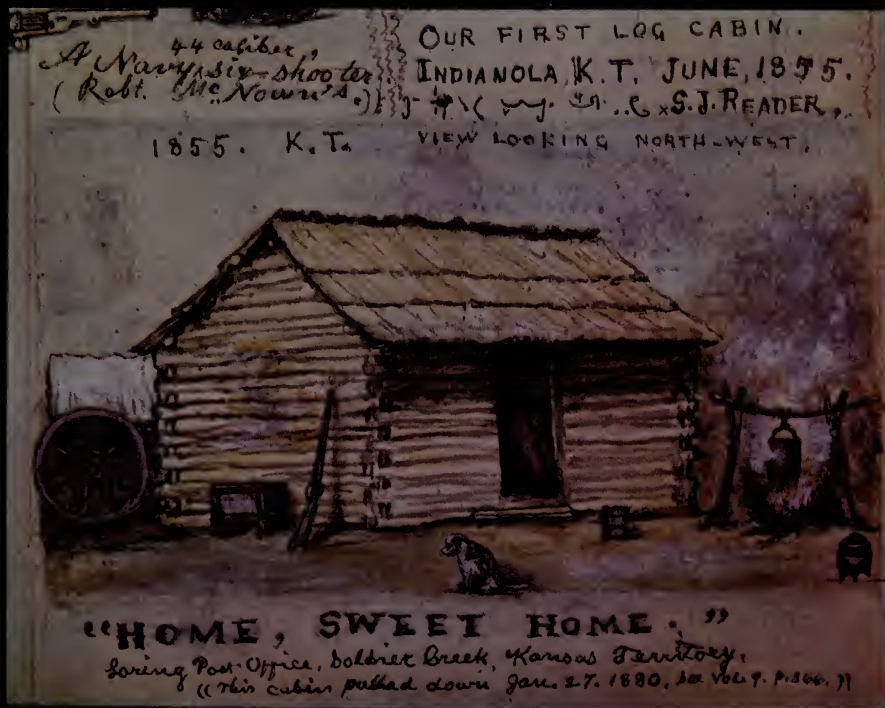 44 caliber,
A Navy, six-shooter
(Robt. McNown's.)
OUR FIRST LOG CABIN.
INDIANOLA, K.T. JUNE, 1855.
S.J. READER,
1855. K.T.
VIEW LOOKING NORTH-WEST.
“HOME, SWEET HOME.”
Loring Post-Office, Soldier Creek, Kansas Territory,
((This cabin pulled down Jan. 27. 1880, see Vol. 9. P.